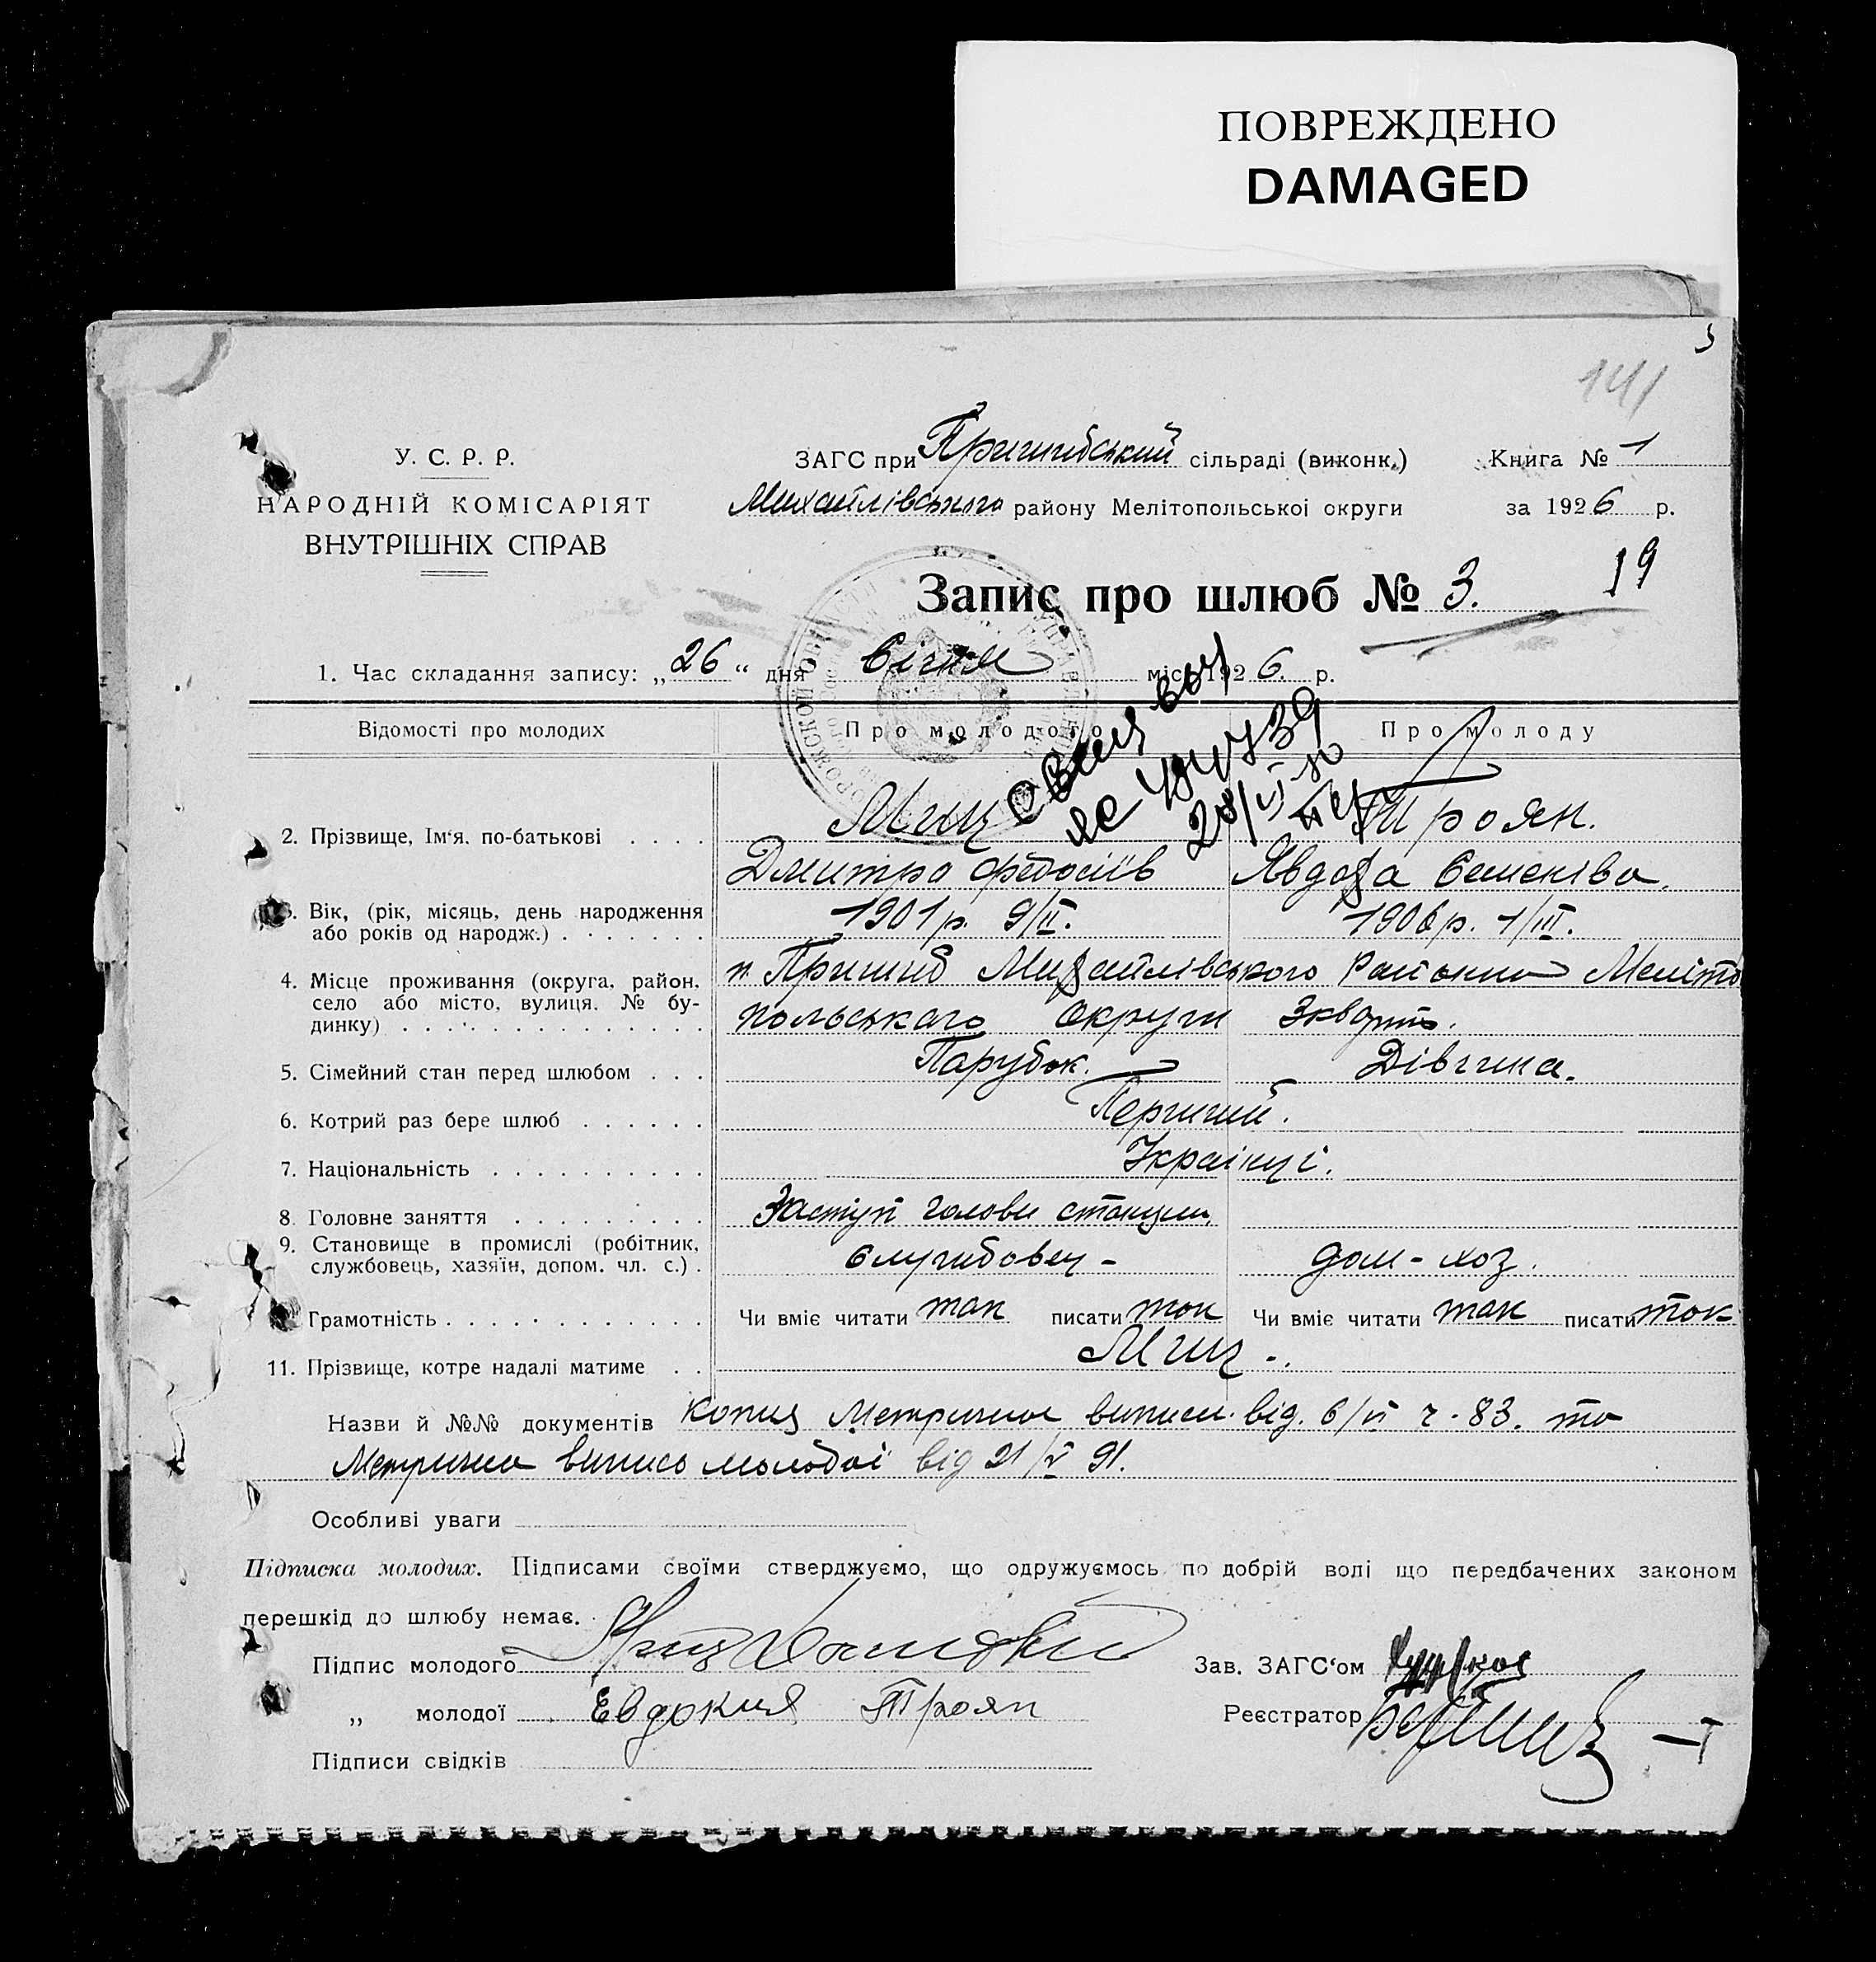 ПОВРЕЖДЕНО
DAMAGED
141
У. С. Р. Р.
НАРОДНІЙ КОМІСАРІЯТ
ВНУТРІШНІХ СПРАВ
ЗАГС при Пришибський сільраді (виконк.)
Михайлівського району Мелітопольської округи
Книга № 1
за 1926 р.
Запис про шлюб № 3.
19
1. Час складання запису: „26“ дня Січня міс. 1926. р.
Відомості про молодих
Про молодого
Про молоду
2. Прізвище, Ім'я, по-батькові
Миц
Троян.
Дмитро Федосіїв
Явдоха Семенівa.
3. Вік, (рік, місяць, день народження або років од народж.)
1901 р. 9/II.
1906 р. 1/III.
4. Місце проживання (округа, район, село або місто, вулиця. № будинку)
п. Пришиб Михайлівського Району Меліто
польського Округи
5. Сімейний стан перед шлюбом
Парубок.
Дівчина.
6. Котрий раз бере шлюб
Перший.
7. Національність
Українці.
8. Головне заняття
Заступ голови станции,
9. Становище в промислі (робітник, службовець, хазяїн, допом. чл. с.)
Службовец -
дом-хоз.
Грамотність
Чи вміє читати так писати так Чи вміє читати так писати так
11. Прізвище, котре надалі матиме
Миц -.
Назви й №№ документів копия Метричної виписи від. 6/VI ч. 83. та
Метрична випись молодої від 21/V 91.
Особливі уваги
Підписка молодих. Підписами своїми стверджуємо, що одружуємось по добрій волі що передбачених законом
перешкід до шлюбу немає.
Підпис молодого
Зав. ЗАГС'ом
„ молодої Евдокия Троян
Реєстратор
Підписи свідків